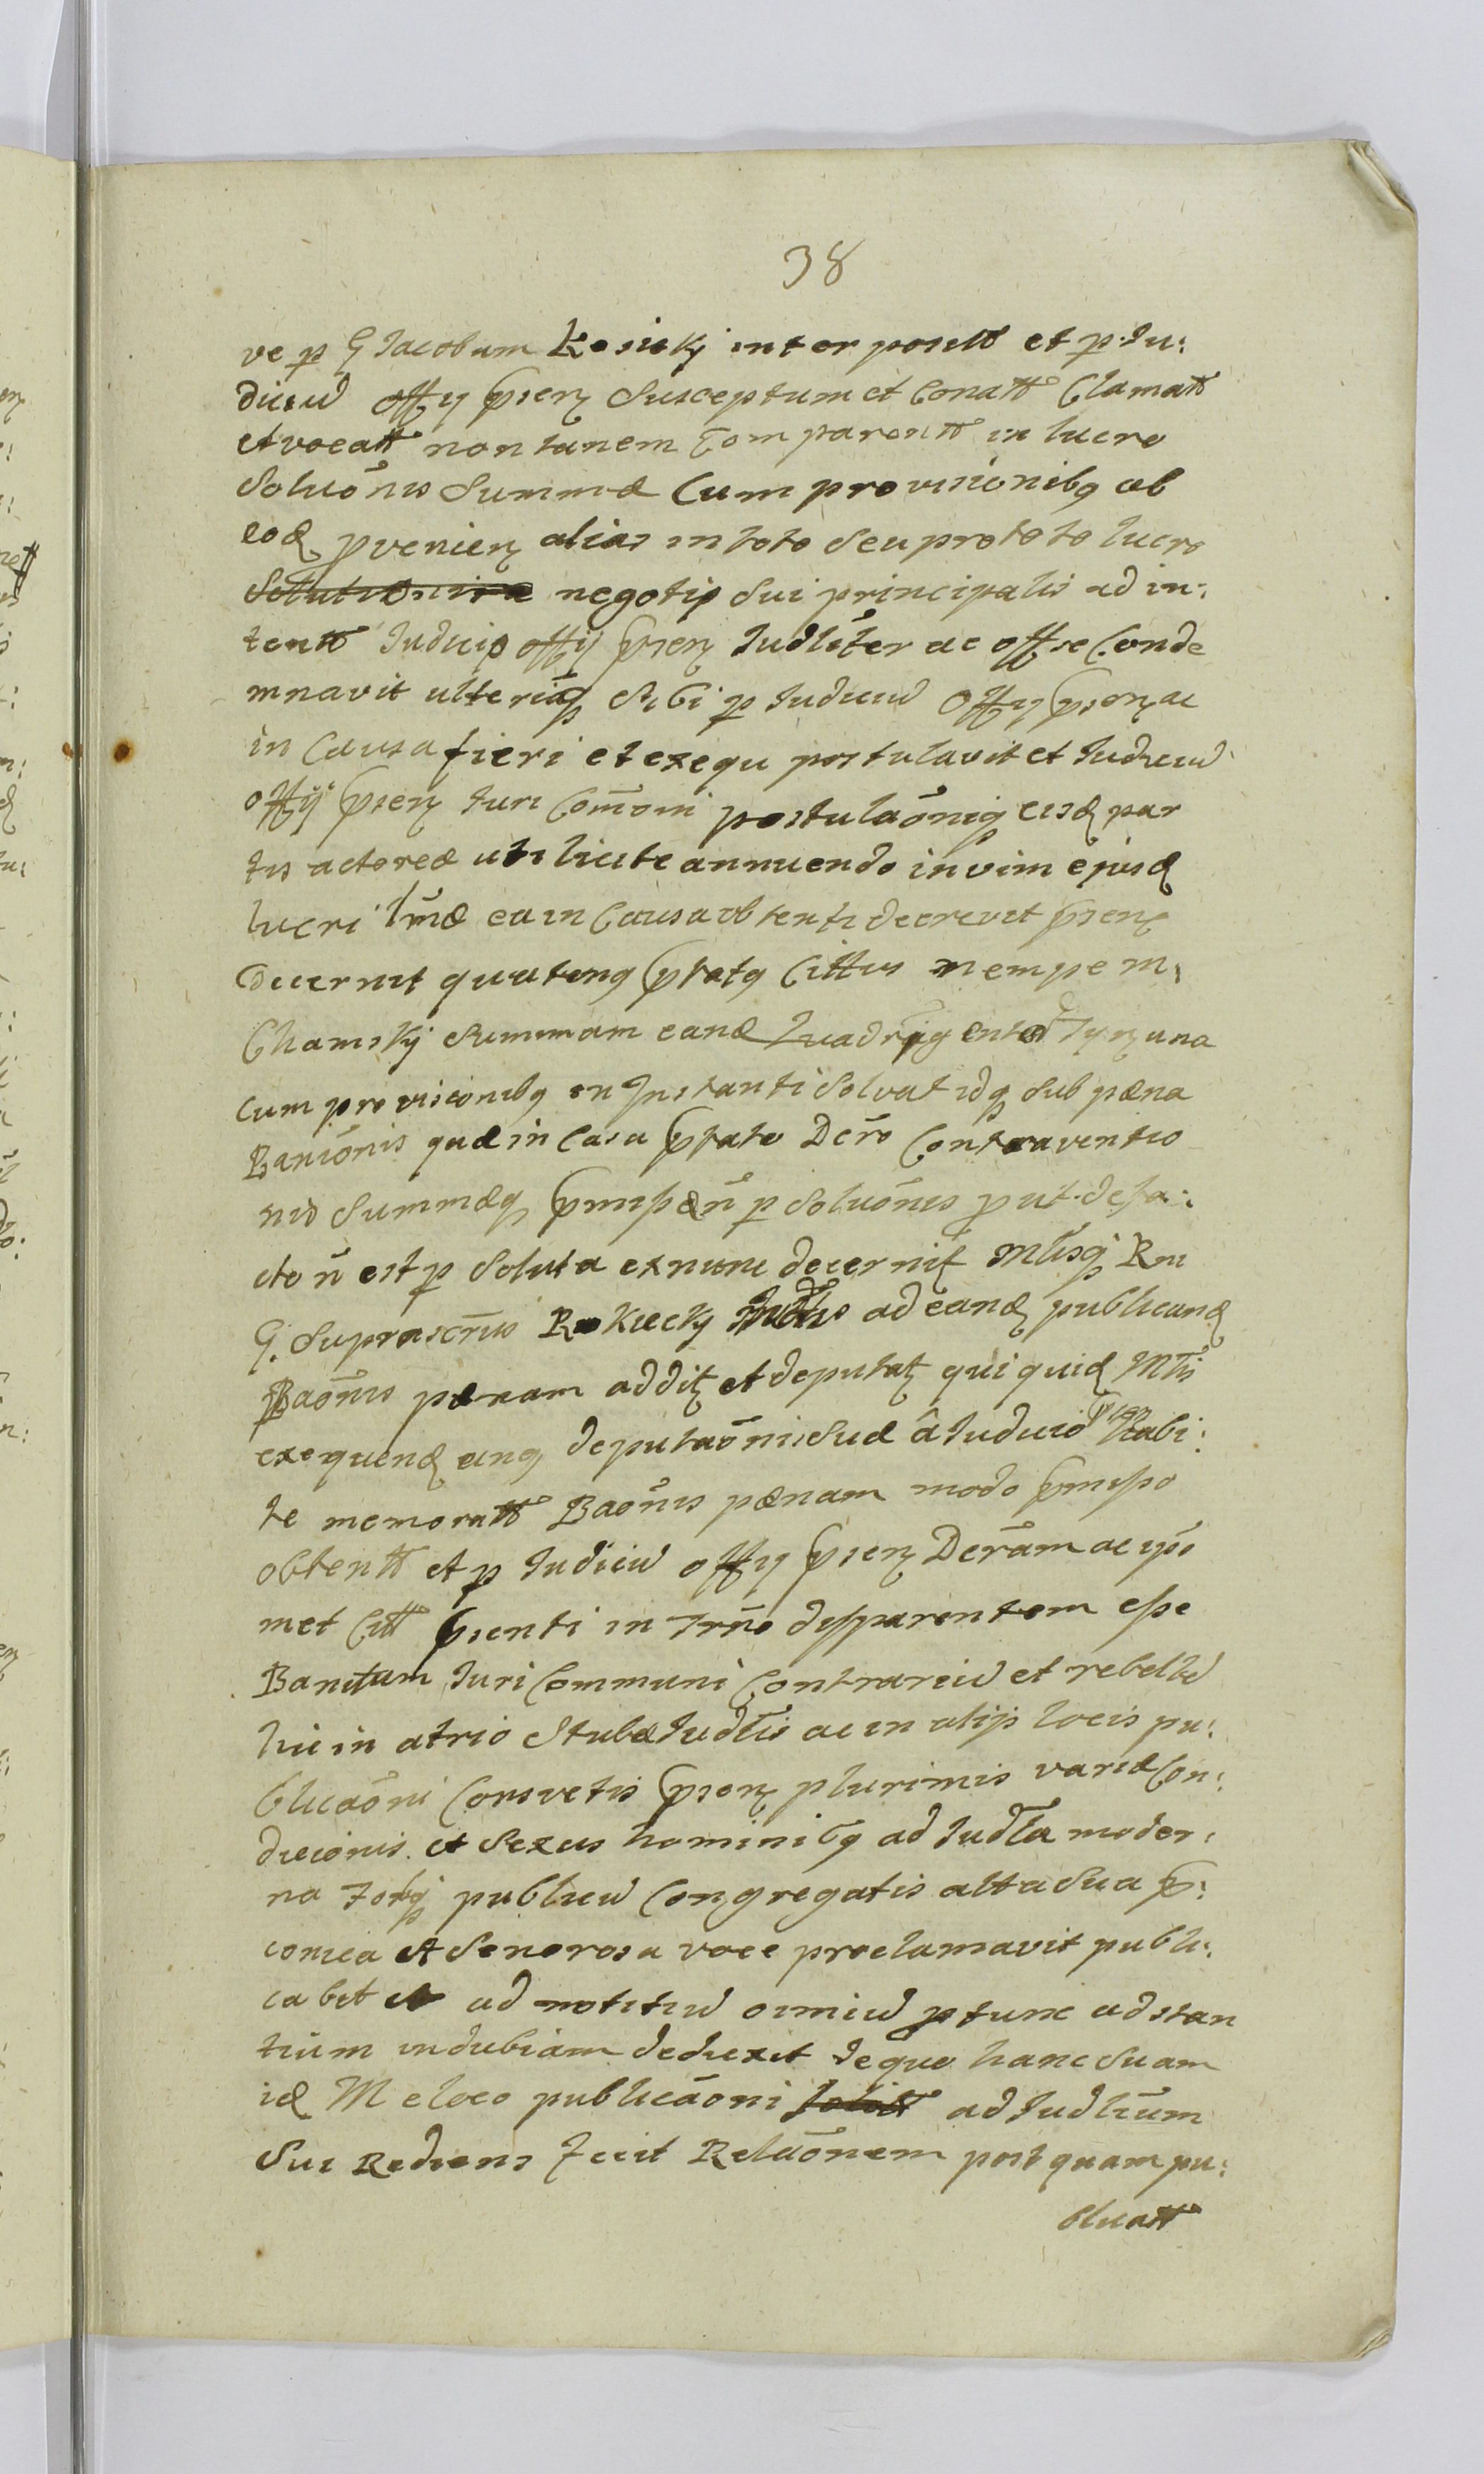 38
ve p G Jacobum Kosicky inter positt et p Ju:
diciu offy psen susceptum et Conatt Clamatt
et vocatt non tamen Comparentt in lucro
Soluõnis Summæ Cum provisionibq ab
eod pvenien alias in toto seu pro toto lucro
Solutionis negotiq sui principalis ad in:
tentt Judicio offy psen Judliter ac offse Conde
mnavit ulteriusq sibi p Judiciu offy psen ac
in Causa fieri et exequ postulavit et Judiciu
offy psen Juri Com̃oni postulaõniq eisd par
tis actoreæ uti licite annuendo in vim ejusd
lucri lm̃æ ea in Causa obtenti decrevit psen
decernit quatenq pfatq Cittus nempe M:
Chamsky Summam eand Quadringentor Tyn una
cum provisionibq in Instanti solvat idq sub pæna
Baniõnis quæ in casu pfato Dc̃ro Contraventio
nis Summæq pmissæ ñ p Soluõnis put de fa:
cto ñ est p Soluta ex nunc decernit Mtisq Rn
G. Suprascr̃us Rokicky Judlis ad eand publicand
Baõnis pænam addit et deputat qui quid Mtis
exequend einq deputaõnis suæ â Judicio psen habi:
te memoratt Baõnis pænam modo pmisso
obtentt et p Judiciu offy psen Decr̃am ac ipõ
met Citt psenti in Trño disparentem esse
Banitum Juri Communi Contrariu et rebelle
hic in atrio Stubæ Judlis ac in alijs locis pu:
blicaõni Consvetis psen plurimis variæ Con:
dicionis et Sexus hominibq ad Judla moder:
na Forq publicu Congregatis alta sua p:
conica et Senorosa voce proclamavit publi:
cavit et ad notitiu omniu p tunc adstan
tium indubiam deduxit de quo hanc suam
id M e loco publicaõni solitt ad Judlium
Sui Rediens fecit Relaõnem postquam pu:
blicatt